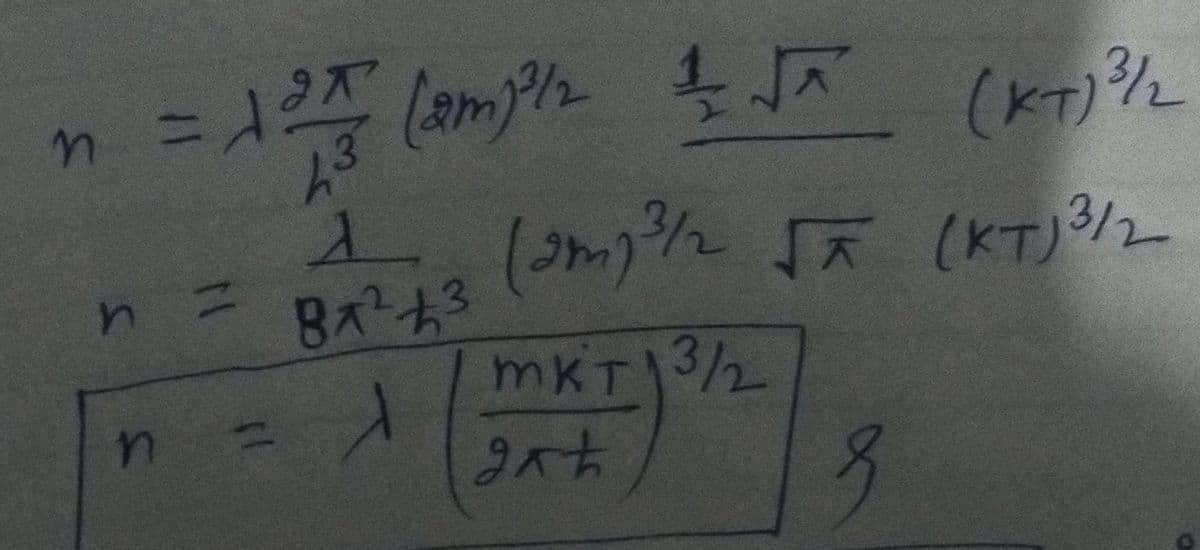 n = λ 2π/h³ (2m)^3/2 1/2 √π (KT)^3/2
n = λ/8π²ħ³ (2m)^3/2 √π (KT)^3/2
n = λ (mKT/2πħ)^3/2